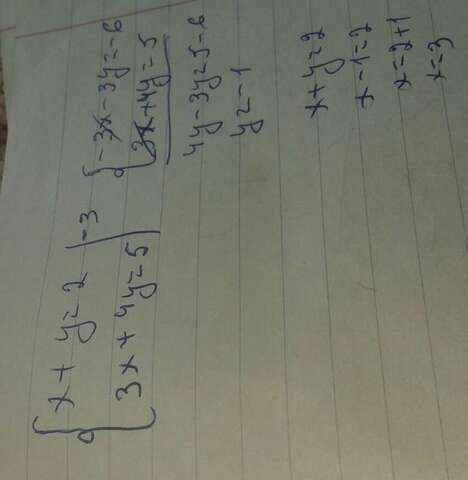 x + y = 2 | -3
3x + 4y = 5
-3x - 3y = -6
3x + 4y = 5
4y - 3y = 5 - 6
y = -1
x + y = 2
x - 1 = 2
x = 2 + 1
x = 3